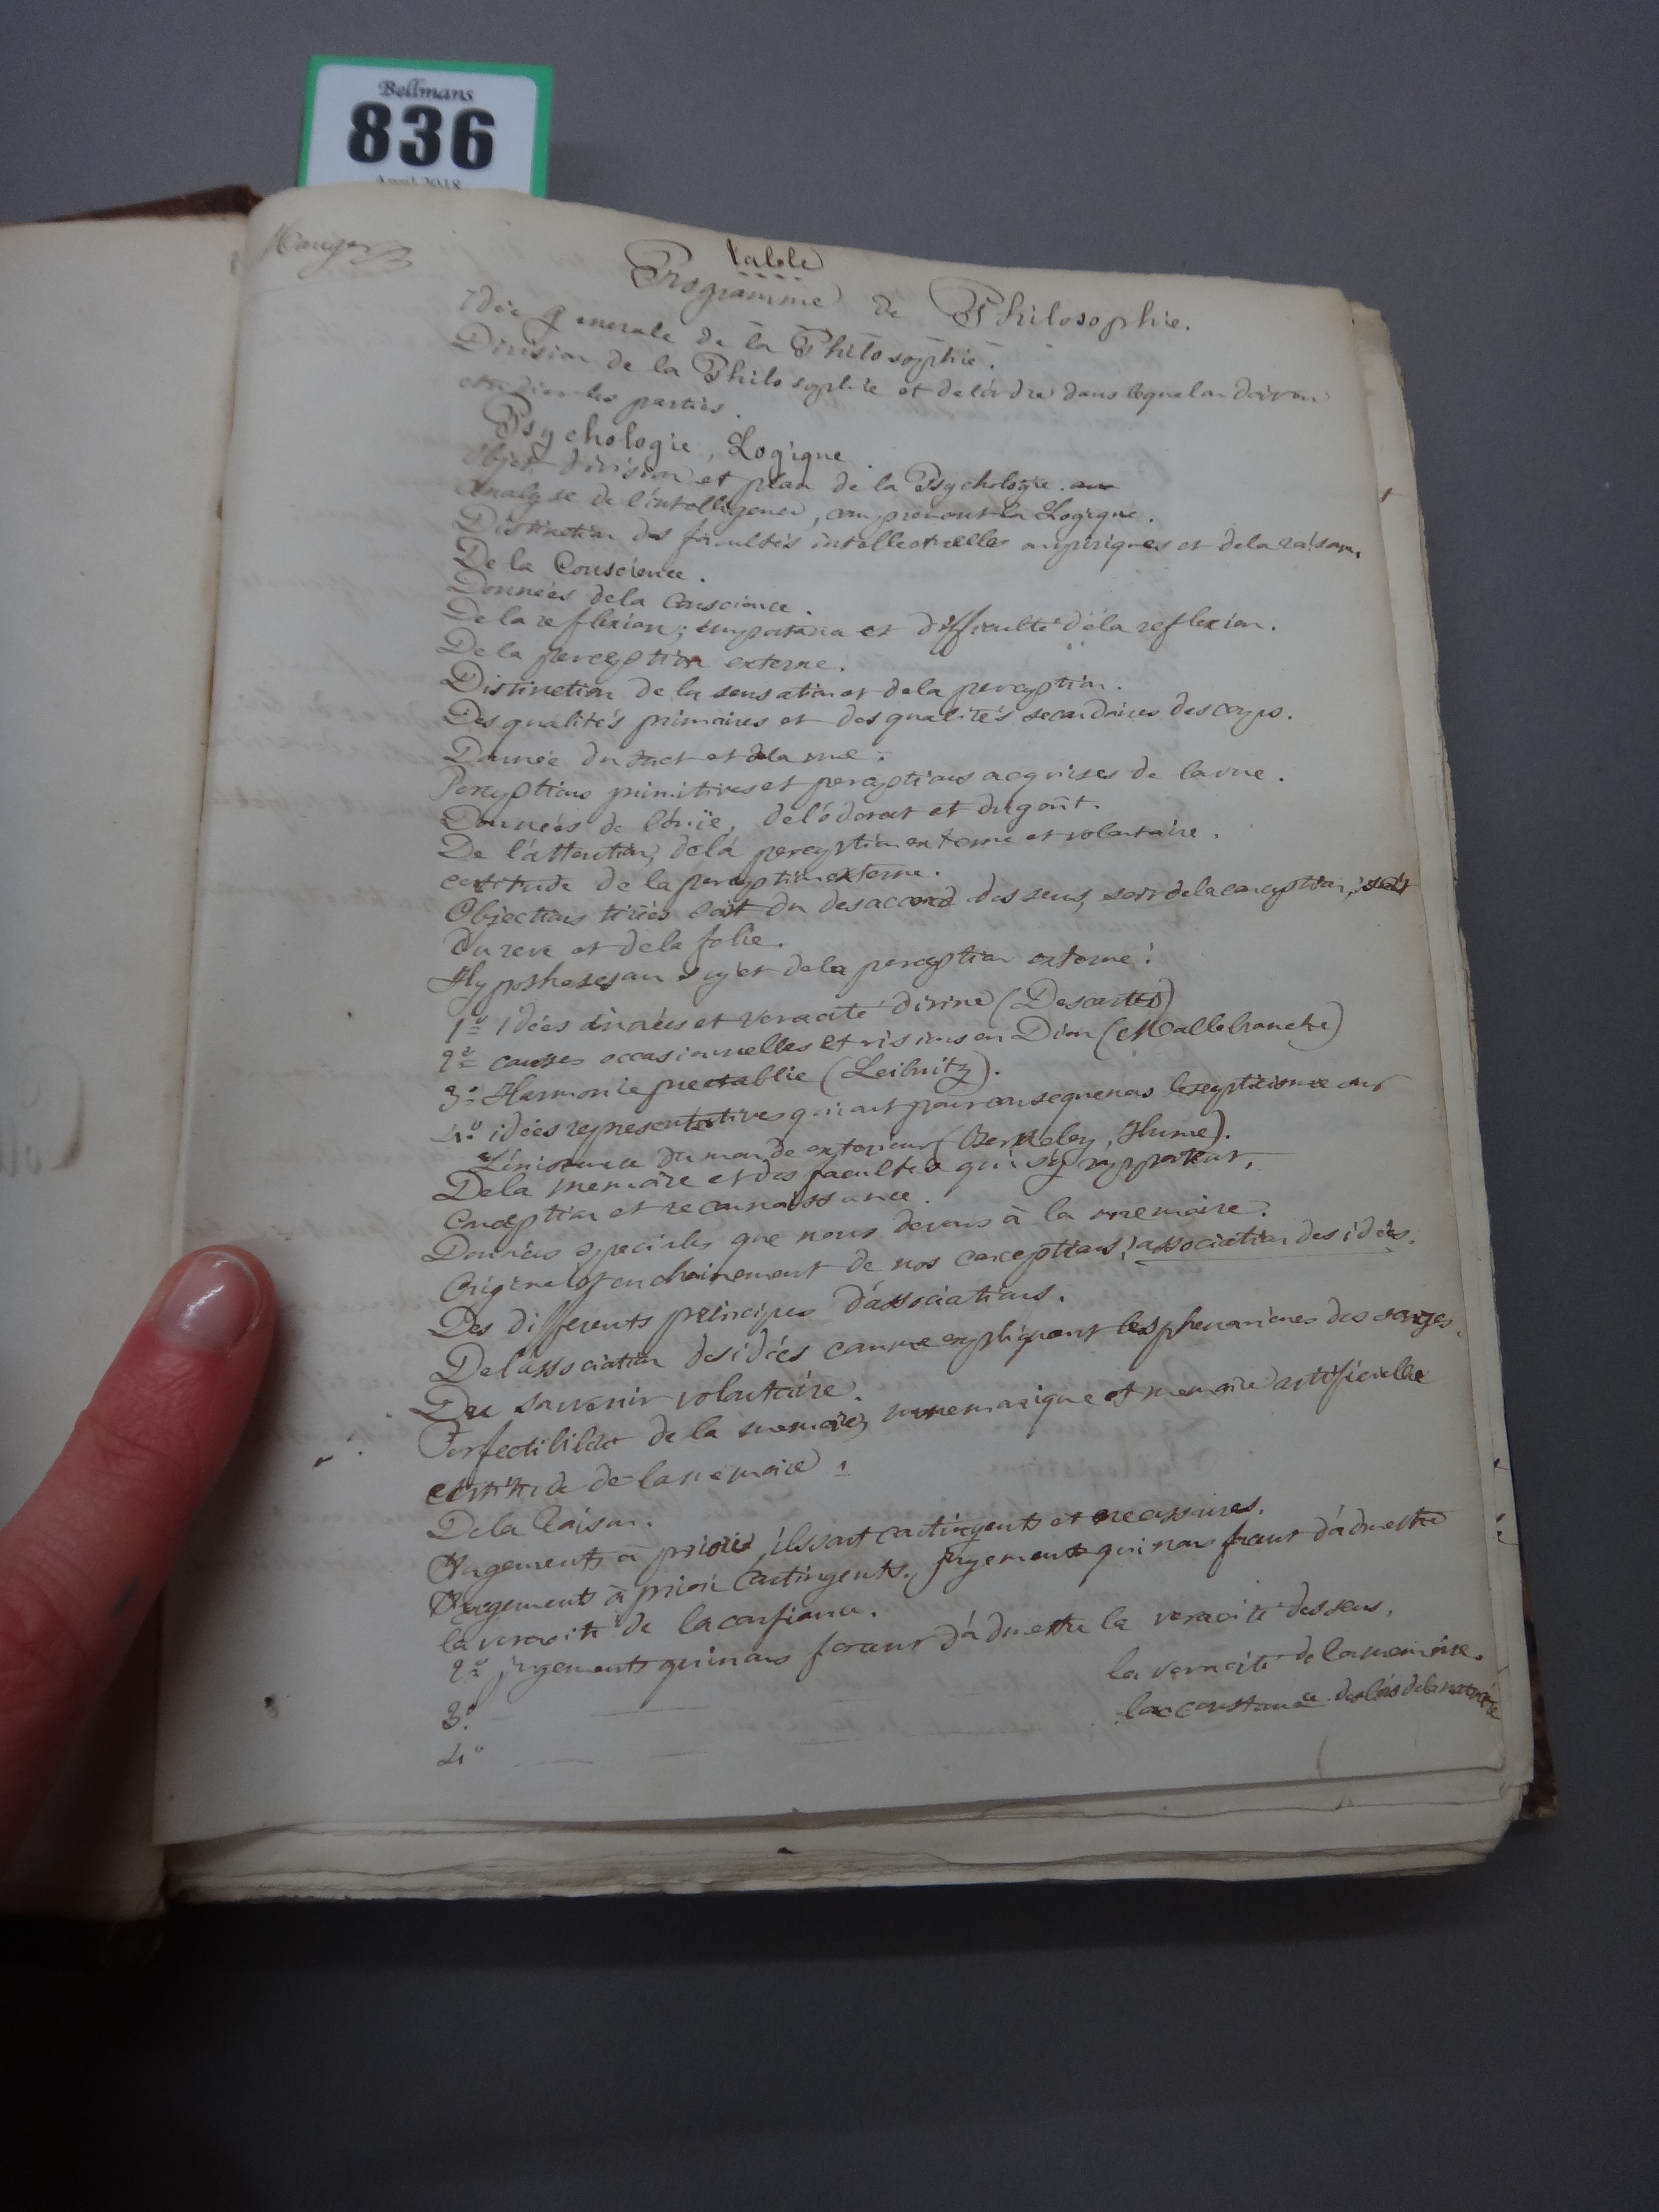 Bellmans
836
April 2018
Mauger
Table
Programme de Philosophie.
Idée generale de la Philosophie.
Division de la Philosophie et de l'ordre dans lequel on doit en
étudier les parties.
Psychologie, Logique.
Objet, division et plan de la Psychologie.
Analyse de l'intelligence, comprenant la Logique.
Distinction des facultés intellectuelles empiriques et de la raison.
De la Conscience.
Données de la Conscience.
De la reflexion; importance et difficulté de la reflexion.
De la perception externe.
Distinction de la sensation et de la perception.
Des qualités primaires et des qualités secondaires des corps.
Donnée du tact et de la vue.
Perceptions primitives et perceptions acquises de la vue.
Données de l'ouïe, de l'odorat et du goût.
De l'attention, de la perception externe et volontaire.
certitude de la perception externe.
Objections tirées soit du desaccord des sens, soit de la conception, soit
du reve et de la folie.
Hypotheses au sujet de la perception externe:
1º Idées innées et veracité divine (Descartes)
2º causes occasionnelles et visions en Dieu (Mallebranche)
3º Harmonie preetablie (Leibnitz).
4º idées representatives qui ont pour consequences le scepticisme sur
l'existence du monde exterieur (Berkeley, Hume).
De la memoire et des facultés qui s'y rapportent,
Conception et reconnaissance.
Données speciales que nous devons à la memoire.
Origine et enchainement de nos conceptions; association des idées.
Des differents principes d'associations.
De l'association des idées comme expliquant les phenomenes des songes.
Du souvenir volontaire.
Perfectibilité de la memoire, mnemonique et memoire artificielle
certitude de la memoire.
De la Raison.
Jugements à priori, ils sont contingents et necessaires.
Jugements à priori contingents, jugements qui nous forcent d'admettre
la veracité de la confiance.
2º jugements qui nous forcent d'admettre la veracité des sens.
3º la veracité de la memoire.
4º la constance des lois de la nature